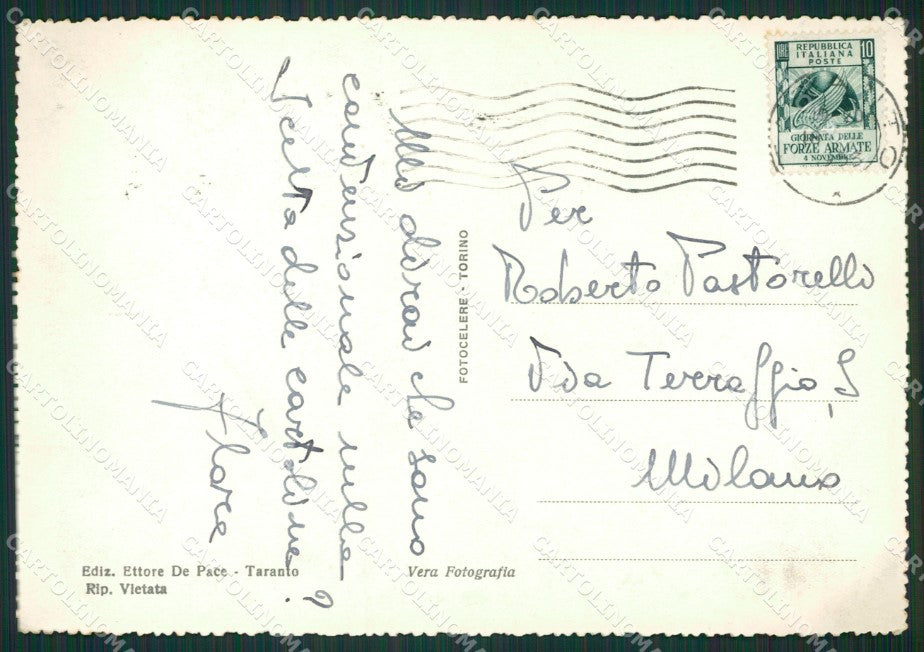 REPUBBLICA
ITALIANA
POSTE
LIRE 10
GIORNATA DELLE
FORZE ARMATE
4 NOVEMBRE
Mi dirai che sono
convenzionale nella
scelta delle cartoline?
Flora
FOTOCELERE - TORINO
Per
Roberto Pastorello
Via Terraggio, 5
Milano
Ediz. Ettore De Pace - Taranto
Rip. Vietata
Vera Fotografia
CARTOLINOMANIA